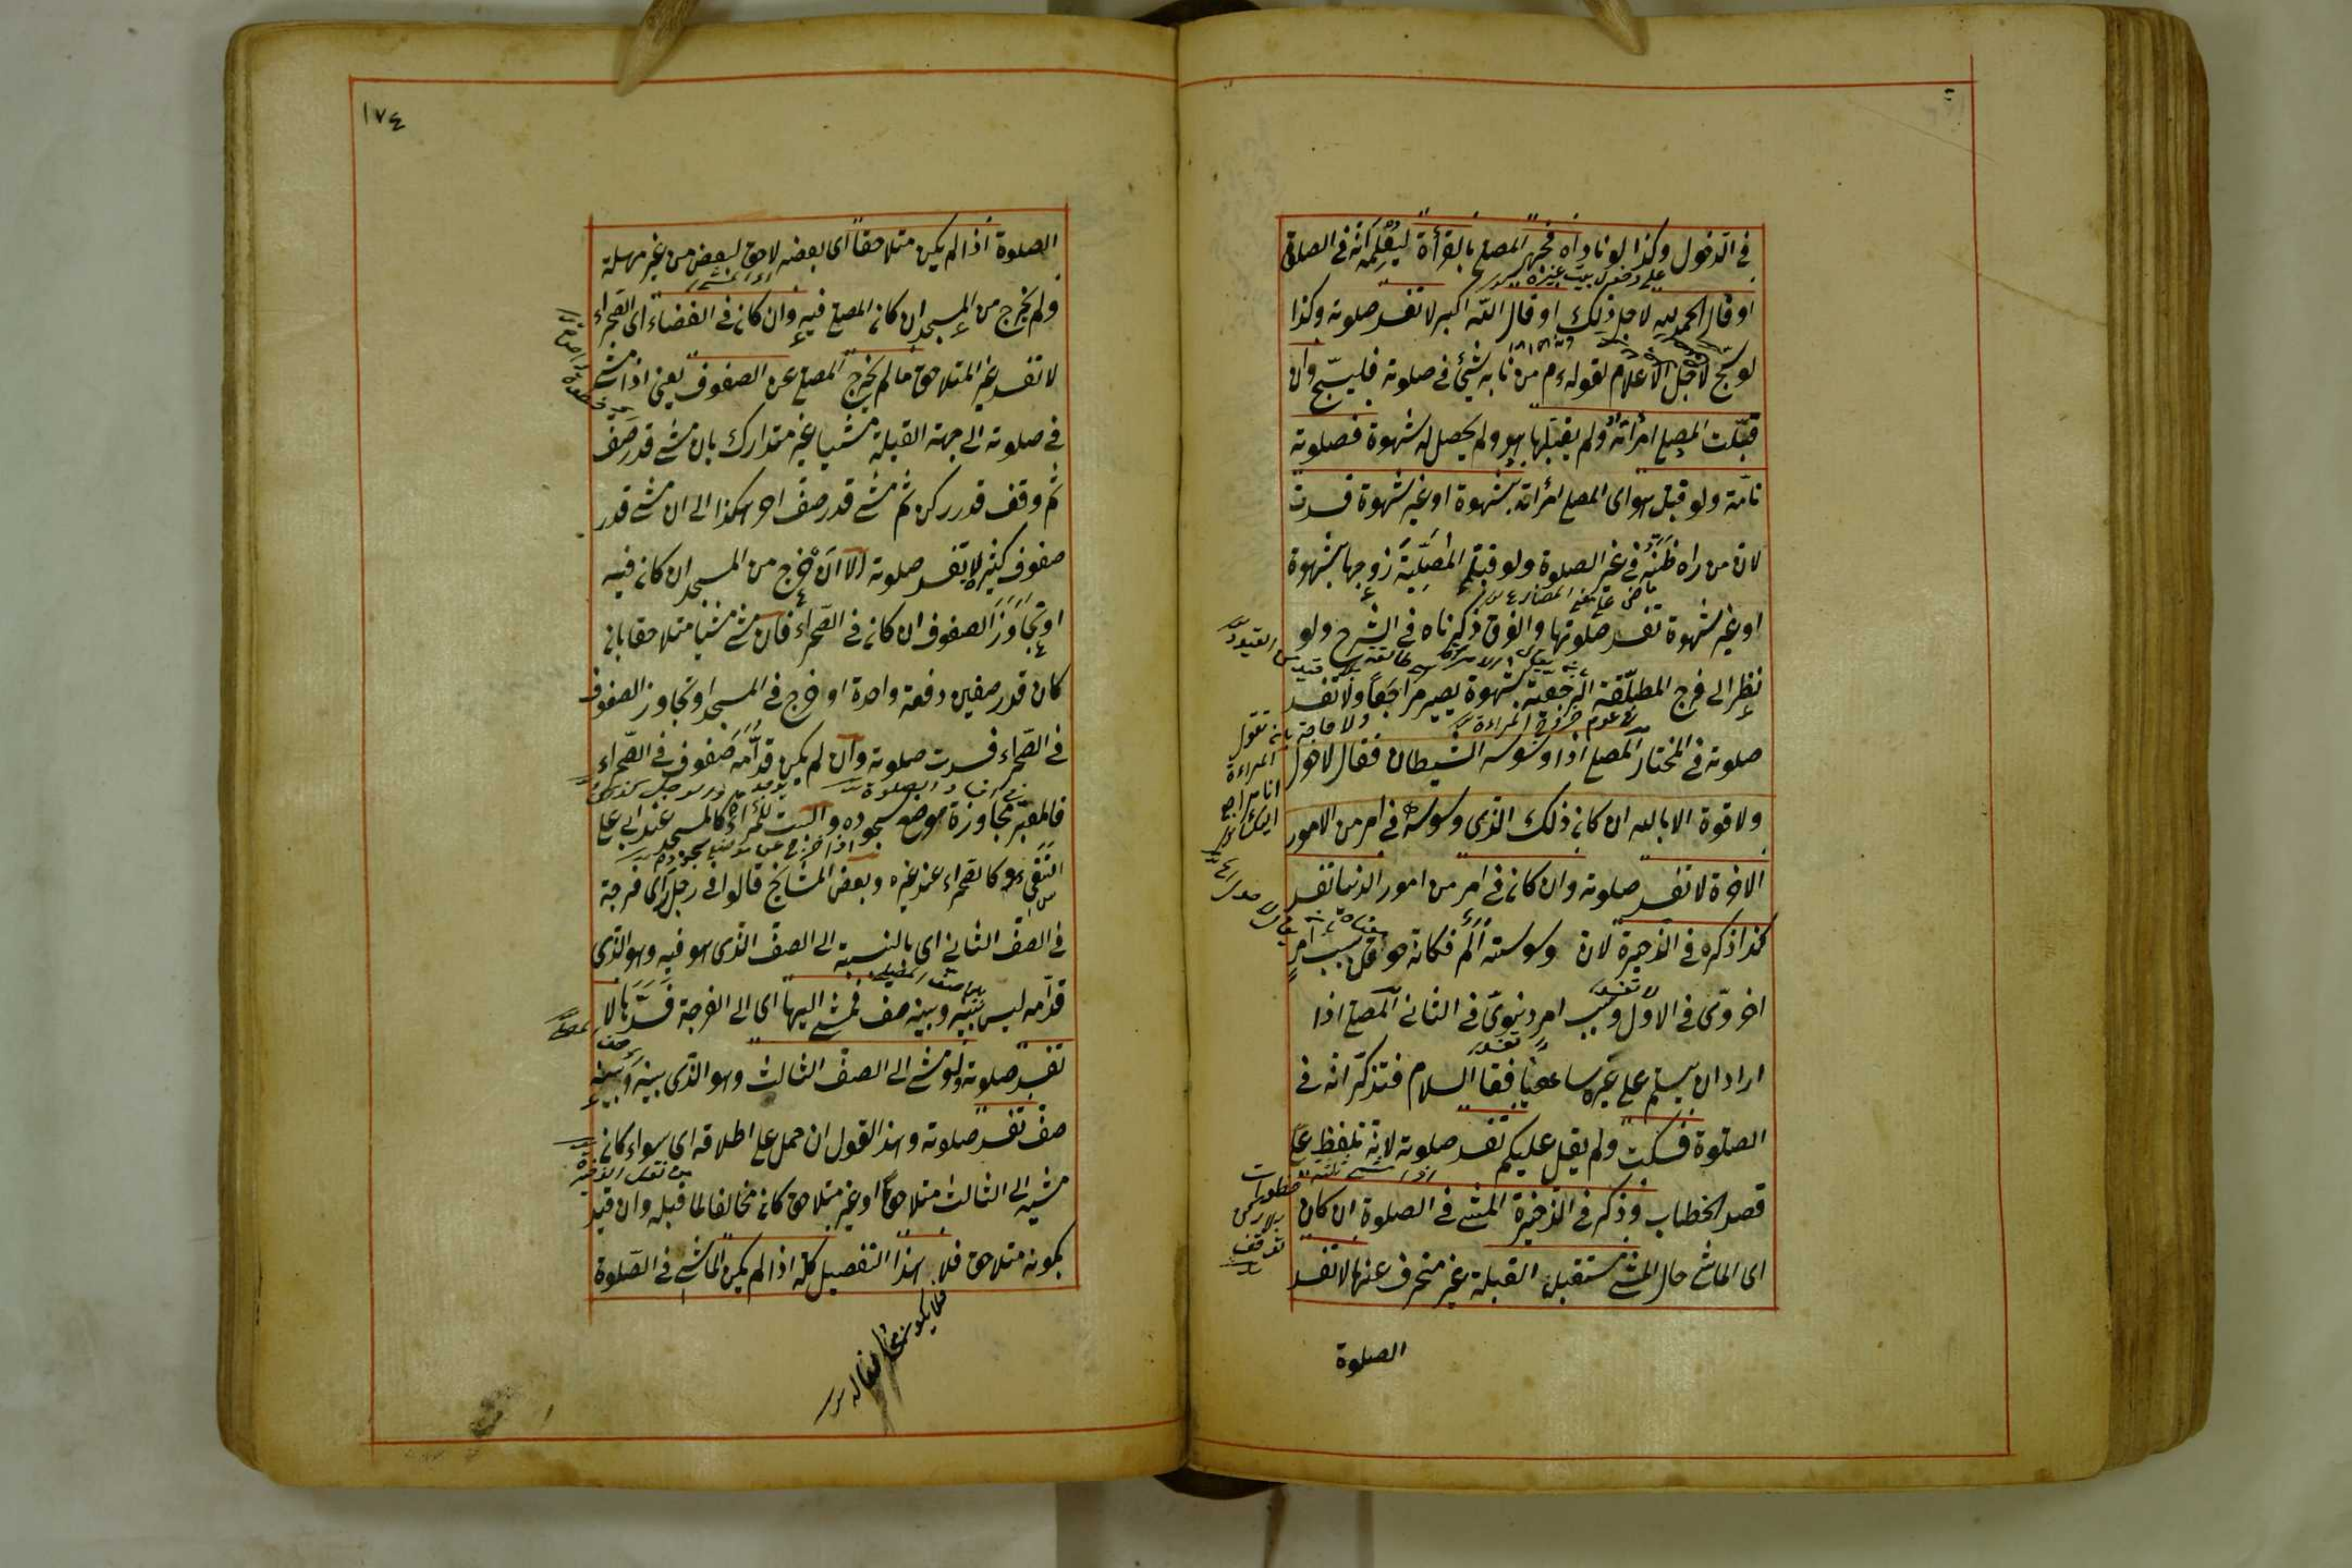 فى الدخول وكذا لو ناداه فجهر المصلى بالقرأة ليعلمه انه فى الصلوة
او قال الحمد لله لاجل ذلك او قال الله اكبر لا تفسد صلوته وكذا
لو سبّح لاجل الاعلام لقوله ءم من نابه شئ فى صلوته فليسبّح وان
قبّلت المصلى امرأته ولم يقبّلها هو ولم يحصل له شهوة فصلوته
تامّة ولو قبل هو اى المصلى امرأته بشهوة او غير شهوة فسدت
لان من راه ظنّه فى غير الصلوة ولو قبّل المصلّيّة زوجها بشهوة
او غير شهوة تفسد صلوتها والفرق ذكرناه فى الشرح ولو
نظر الى فرج المطلّقة الرجعية بشهوة يصير مراجعا ولا تفسد
صلوته فى المختار المصلى اذا وسوسه الشيطان فقال لا حول
ولا قوة الا بالله ان كان ذلك الذى وسوسه فى امر من الامور
الاخرة لا تفسد صلوته وان كان فى امر من امور الدنيا تفسد
كذا ذكره فى الذخيرة لان وسوسته الم فكانه حوقل بسبب امر
اخروّى فى الاول وبسبب امر دنيوىّ فى الثانى المصلى اذا
اراد ان يسلم على غيره ساهيا فقال السلام فتذكر انه فى
الصلوة فسكت ولم يقل عليكم تفسد صلوته لانه تلفظ على
قصد الخطاب وذكر فى الذخيرة المشى فى الصلوة ان كان
اى الماشى حال المشى مستقبل القبلة غير منحرف عنها لا تفسد
الصلوة
على دخول بيت غيره
من القيود
ولا حاجة بان تقول
المراءة
انا مراجع
اذا مشى ثلثة خطوات
بلا ركن
توقف
١٧٤
الصلوة اذا لم يكن متلاحقا اى بعضه لاحق لبعض من غير مهلة
ولم يخرج من المسجد ان كان المصلى فيه وان كان فى الفضاء اى الصحراء
لا تفسد غير المتلاحق ما لم يخرج المصلى عن الصفوف يعنى اذا مشى
فى صلوته الى جهة القبلة مشيا غير متدارك بان مشى قدر صف
ثم وقف قدر ركن ثم مشى قدر صف اخر هكذا الى ان مشى قدر
صفوف كثيرة لا تفسد صلوته الا ان خرج من المسجد ان كان فيه
او تجاوز الصفوف ان كان فى الصحراء فان مشى مشيا متلاحقا بان
كان قدر صفين دفعة واحدة او خرج فى المسجد او تجاوز الصفوف
فى الصحراء فسدت صلوته وان لم يكن قدّامه صفوف فى الصحراء
فالمعتبر مجاوزة موضع سجوده والبيت للمرأة كالمسجد عند ابى على
النسفى وكالصحراء عند غيره وبعض المشايخ قالوا فى رجل راى فرجة
فى الصف الثانى اى بالنسبة الى الصف الذى هو فيه وهو الذى
قدامه ليس بينه وبينه صف فمشى اليها اى الى الفرجة فسدّها لا
تفسد صلوته ولو مشى الى الصف الثالث وهو الذى بينه وبينه
صف تفسد صلوته وهذا القول ان حمل على اطلاقه اى سواء كان
مشيه الى الثالث متلاحقا او غير متلاحق كان مخالفا لما قبله وان قيد
بكونه متلاحق فلا هذا التفصيل كله اذا لم يكن الماشى فى الصلوة
فلا يكون مخالفا له